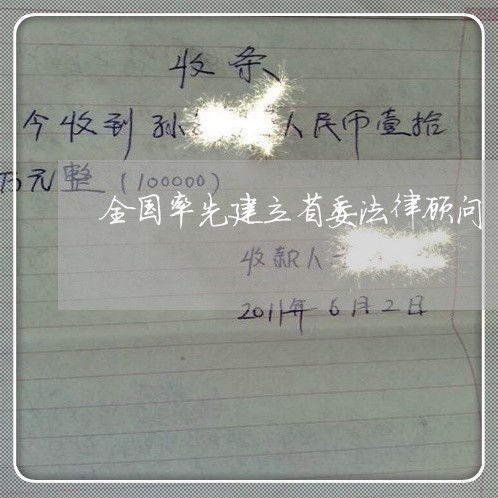 收条
今收到孙 人民币壹拾
万元整(100000)
全国率先建立省委法律顾问
收款人
2011年6月2日